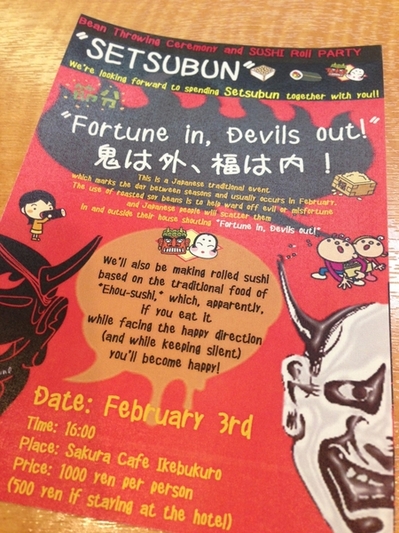 Bean Throwing Ceremony and SUSHI Roll PARTY
"SETSUBUN"
We're looking forward to spending Setsubun together with you!!
節分
"Fortune in, Devils out!"
鬼は外、福は内！
This is a Japanese traditional event
which marks the day between seasons and usually occurs in February.
The use of roasted soy beans is to help ward off evil or misfortune
and Japanese people will scatter them
in and outside their house shouting "Fortune in, Devils out!"
We'll also be making rolled sushi
based on the traditional food of
"Ehou-sushi," which, apparently,
if you eat it
while facing the happy direction
(and while keeping silent)
you'll become happy!
Date: February 3rd
Time: 16:00
Place: Sakura Cafe Ikebukuro
Price: 1000 yen per person
(500 yen if staying at the hotel)